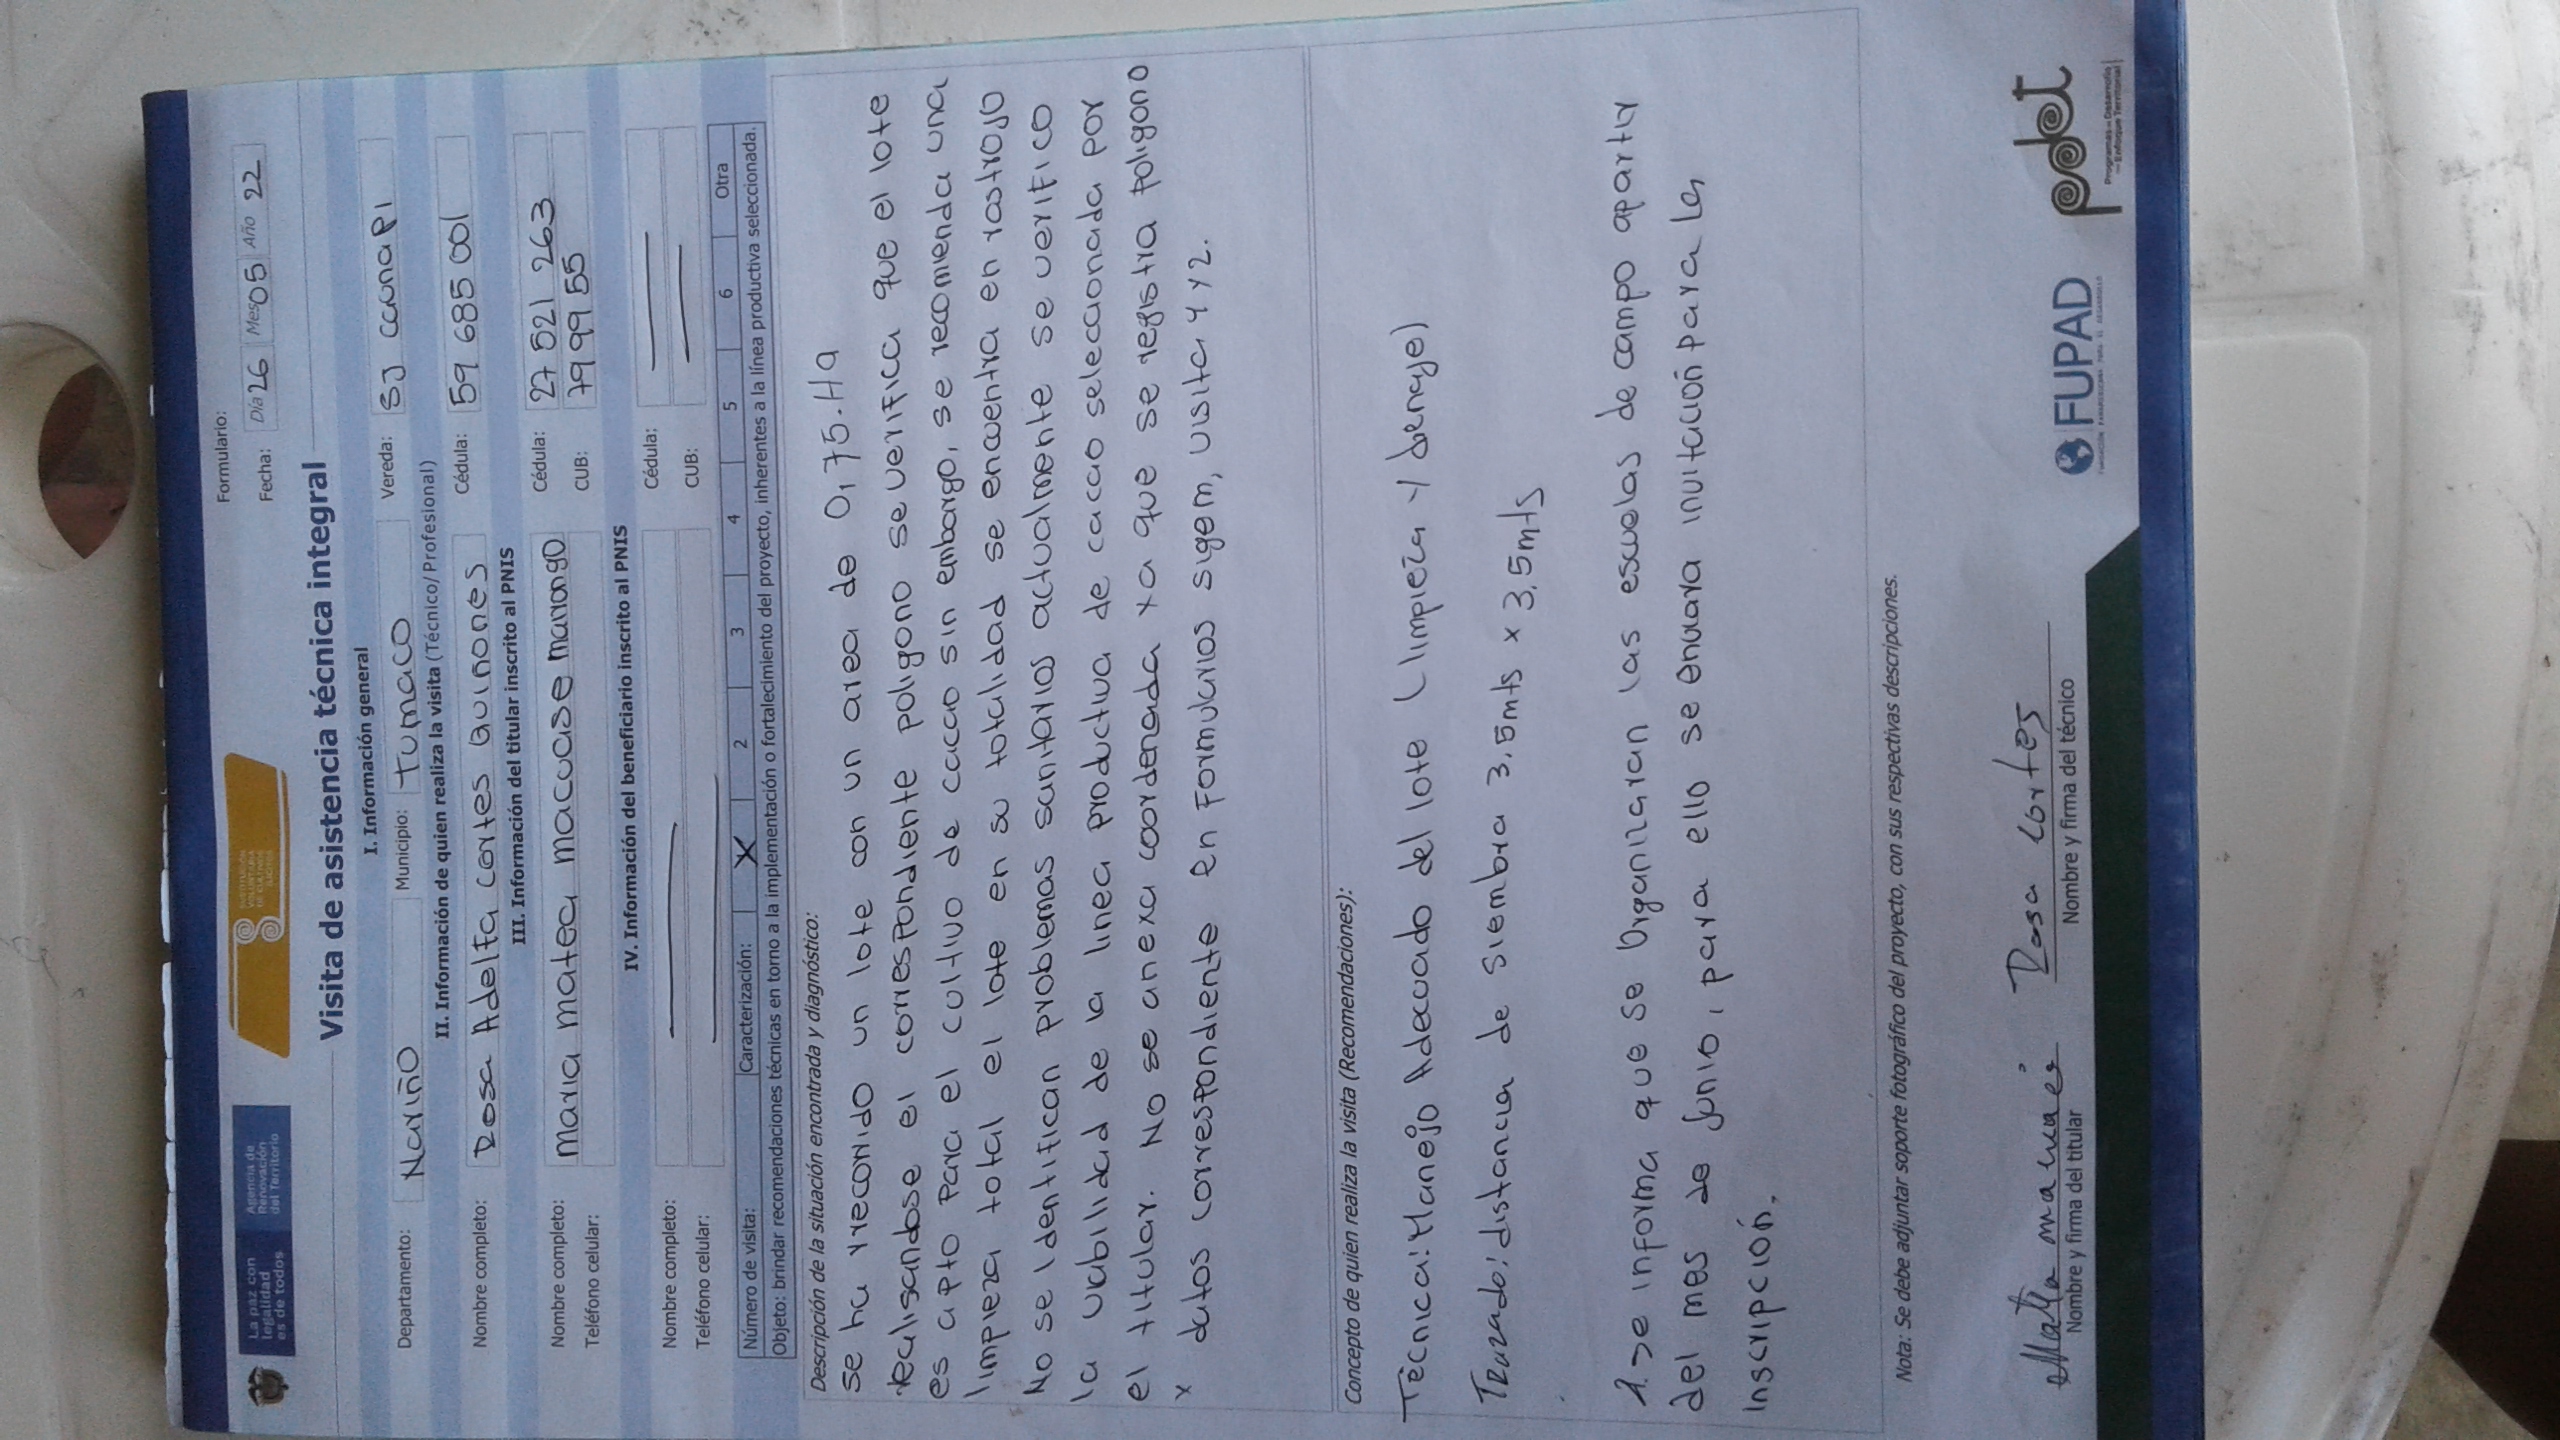 La paz con
legalidad
es de todos
Agencia de
Renovación
del Territorio
SUSTITUCIÓN
VOLUNTARIA
DE CULTIVOS
ILÍCITOS
Formulario:
Fecha: Día 26 Mes 05 Año 22
Visita de asistencia técnica integral
I. Información general
Departamento: Nariño Municipio: Tumaco Vereda: SJ caunapi
II. Información de quien realiza la visita (Técnico/ Profesional)
Nombre completo: Rosa Adelfa cortes Quiñones Cédula: 59 685 001
III. Información del titular inscrito al PNIS
Nombre completo: Maria matea macuase Cédula: 27 521 263
Teléfono celular: CUB: 79 99 55
IV. Información del beneficiario inscrito al PNIS
Nombre completo: Cédula:
Teléfono celular: CUB:
Número de visita: Caracterización: X 2 3 4 5 6 Otra
Objeto: brindar recomendaciones técnicas en torno a la implementación o fortalecimiento del proyecto, inherentes a la línea productiva seleccionada.
Descripción de la situación encontrada y diagnóstico:
se ha rrecorrido un lote con un area de 0,75.Ha
realisandose el correspondiente poligono se verifica que el lote
es apto para el cultivo de cacao sin embargo, se recomienda una
limpieza total el lote en su totalidad se encuentra en rastrojo
No se identifican problemas sanitarios actualmente se verifico
la viabilidad de la linea productiva de cacao seleccionada por
el titular. No se anexa coordenada xa que se registra poligono
x datos correspondiente en Formularios sigem, visita 1 y 2.
Concepto de quien realiza la visita (Recomendaciones):
Tècnica: Manejo Adecuado del lote (limpieza y Denaje)
Trazado: distancia de siembra 3.5mts x 3.5mts
1. se informa que se Organizaran las escuelas de campo apartir
del mes de Junio, para ello se enviara invitación para la
inscripción.
Nota: Se debe adjuntar soporte fotográfico del proyecto, con sus respectivas descripciones.
Rosa Cortes
Nombre y firma del titular Nombre y firma del técnico
FUPAD
FUNDACIÓN PANAMERICANA PARA EL DESARROLLO
pdet
Programas de Desarrollo
con Enfoque Territorial